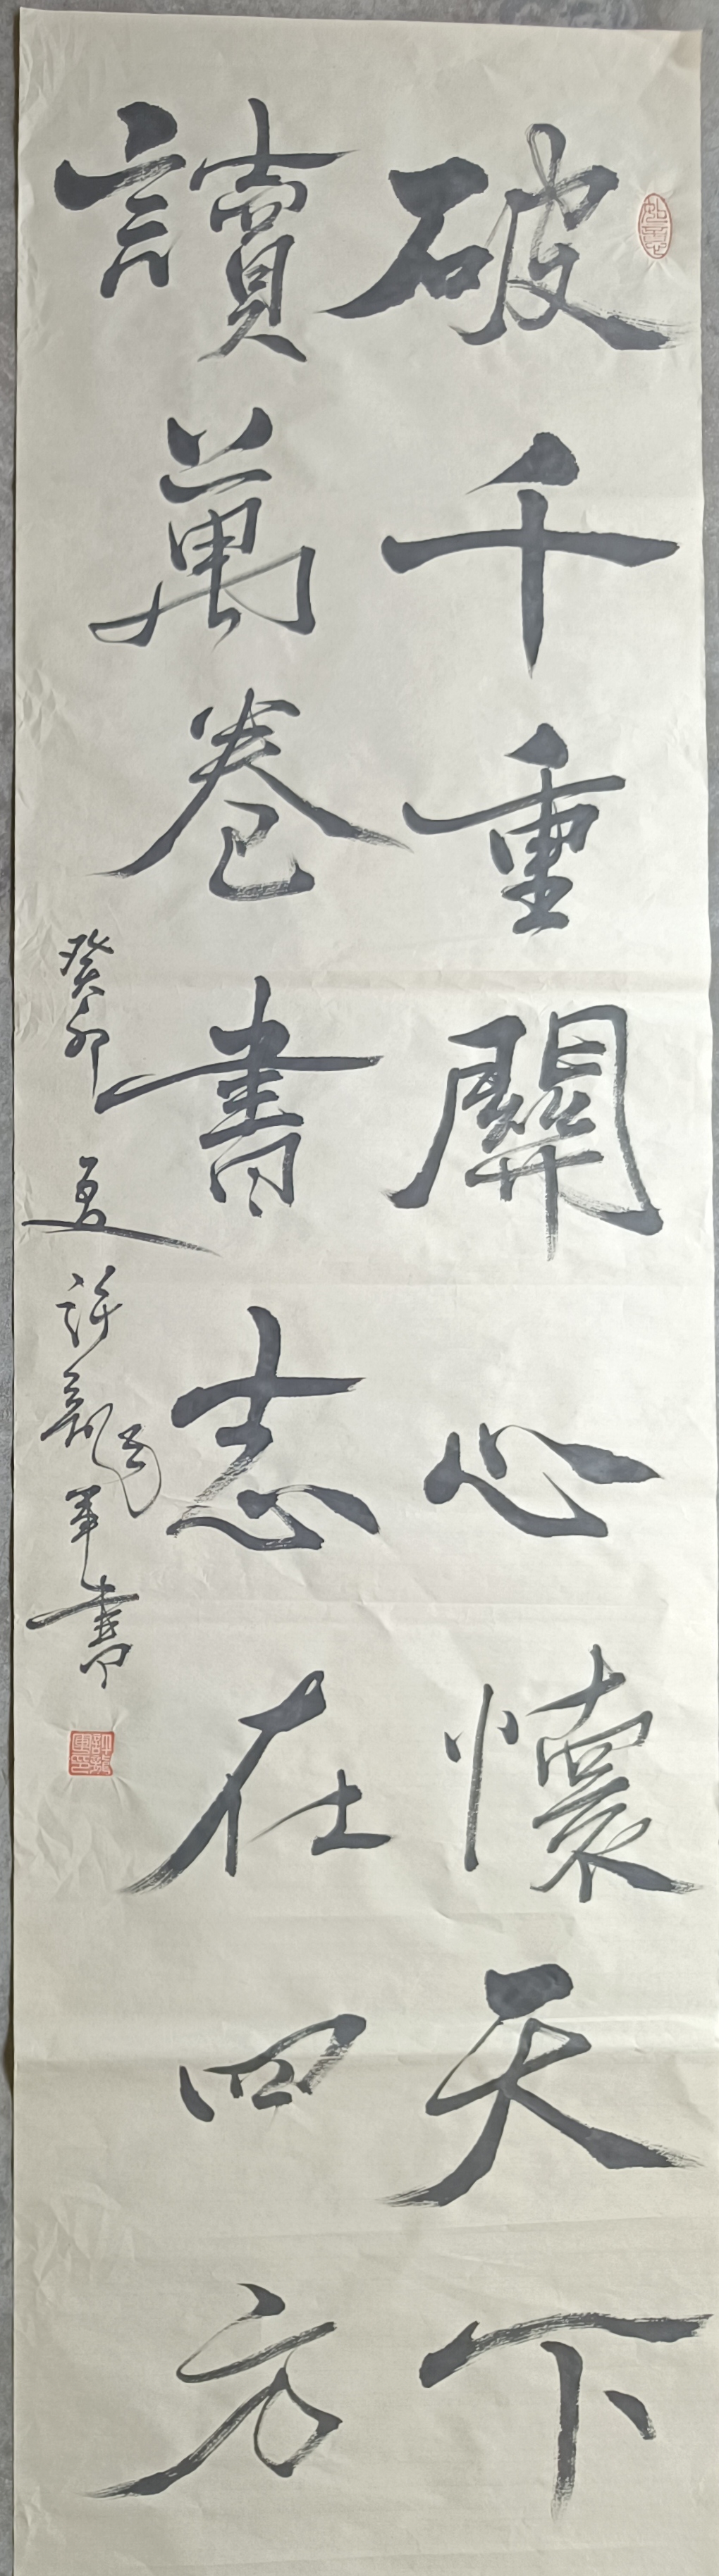 破千重關心懷天下
讀萬卷書志在四方
癸卯夏許龍軍書